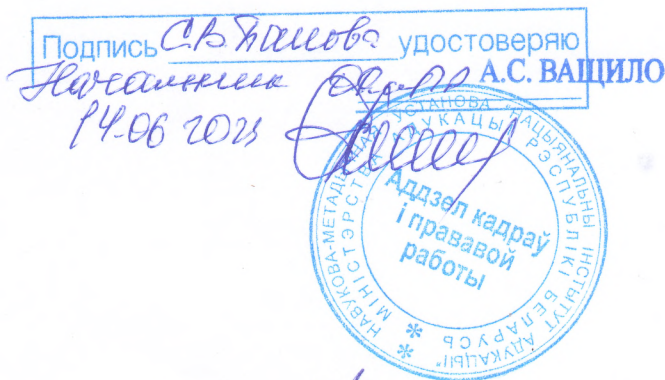 Подпись С.В. Панова удостоверяю
Начальник А.С. ВАЩИЛО
14.06 2021
НАВУКОВА-МЕТАДЫЧНАЯ УСТАНОВА "НАЦЫЯНАЛЬНЫ ІНСТЫТУТ АДУКАЦЫІ"
МІНІСТЭРСТВА АДУКАЦЫІ РЭСПУБЛІКІ БЕЛАРУСЬ
Аддзел кадраў
і прававой
работы